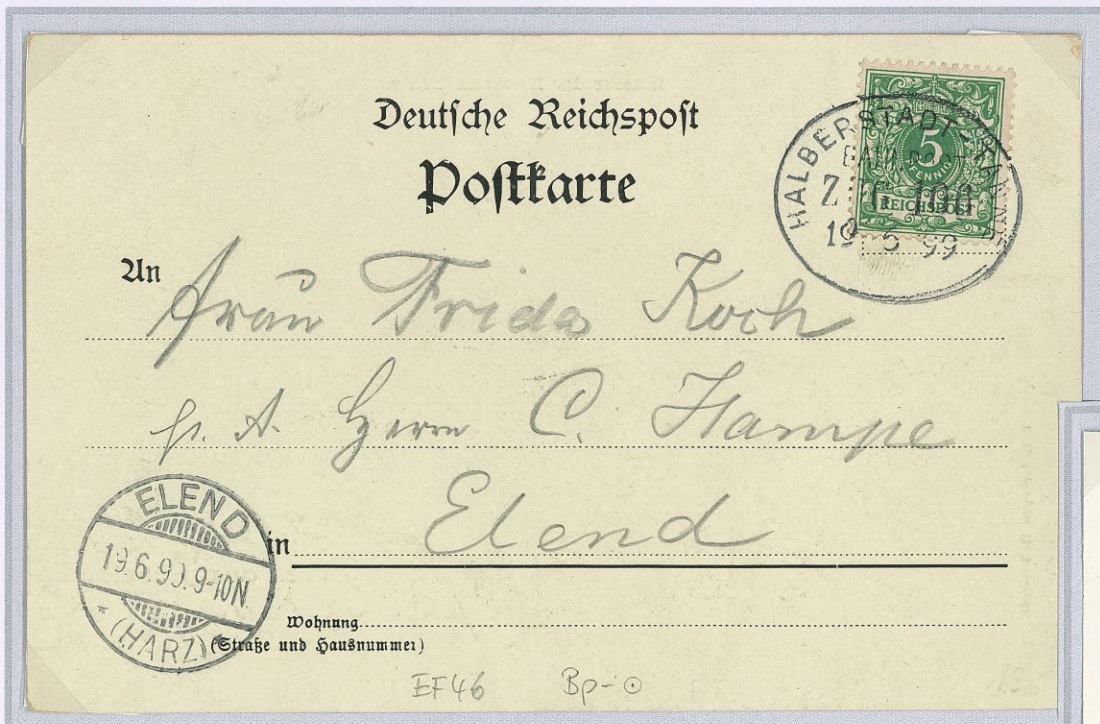 Deutsche Reichspost
Postkarte
HALBERSTADT-TANNE
5
PFENNIG
REICHSPOST
19 6 99
An
Frau Frida Koch
p. A. Herrn C. Hampe
in Elend
ELEND
19.6.99.9-10N.
* (HARZ) *
Wohnung
(Straße und Hausnummer)
EF46 Bp-⊙